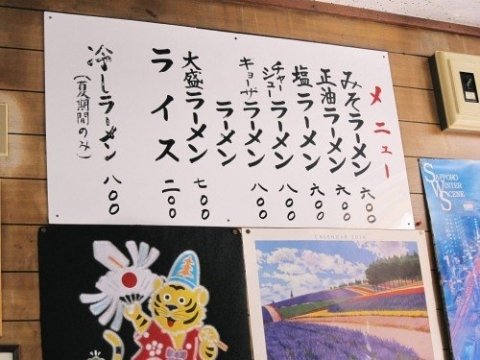 メニュー
みそラーメン 六〇〇
正油ラーメン 六〇〇
塩ラーメン 六〇〇
チャーシューラーメン 八〇〇
キョーザラーメン 八〇〇
ラーメン
大盛ラーメン 七〇〇
ライス 二〇〇
冷しラーメン 八〇〇
(夏期間のみ)
CALENDAR 2010
SAPPORO
WINTER
SCENE